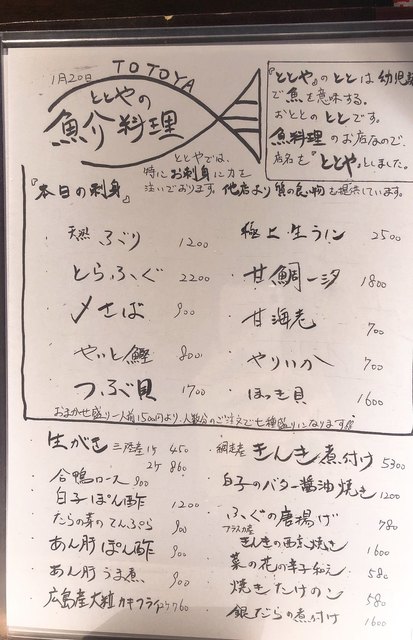 1月20日
TOTOYA
ととやの
魚介料理
『ととや』のととは幼児
で魚を意味する。
おととのととです。
魚料理のお店なので、
店名を『ととや』としました。
ととやでは、
特にお刺身に力を
注いでおります。他店より質の良い物を提供しています。
『本日の刺身』
・天然ぶり 1200
・とらふぐ 2200
・〆さば 900
・やいと鰹 800
・つぶ貝 1700
・極上生うに 2500
・甘鯛一汐 1800
・甘海老 700
・やりいか 700
・ほっき貝 1600
おまかせ盛り一人前1500円より、人数分のご注文で七種盛りになります。
生がき 三陸産 1ケ 450
2ケ 860
合鴨ロース 900
白子ぽん酢 1200
たらの芽のてんぷら 900
あん肝ぽん酢 900
あん肝うま煮 900
広島産大粒カキフライ 760
・網走産きんき煮付け 5300
・白子のバター醤油焼き 1200
・ふぐの唐揚げ 780
アラスカ産
・きんきの西京焼き 1600
・菜の花の辛子和え 580
・焼きたけのこ 580
・銀だらの煮付け 1600